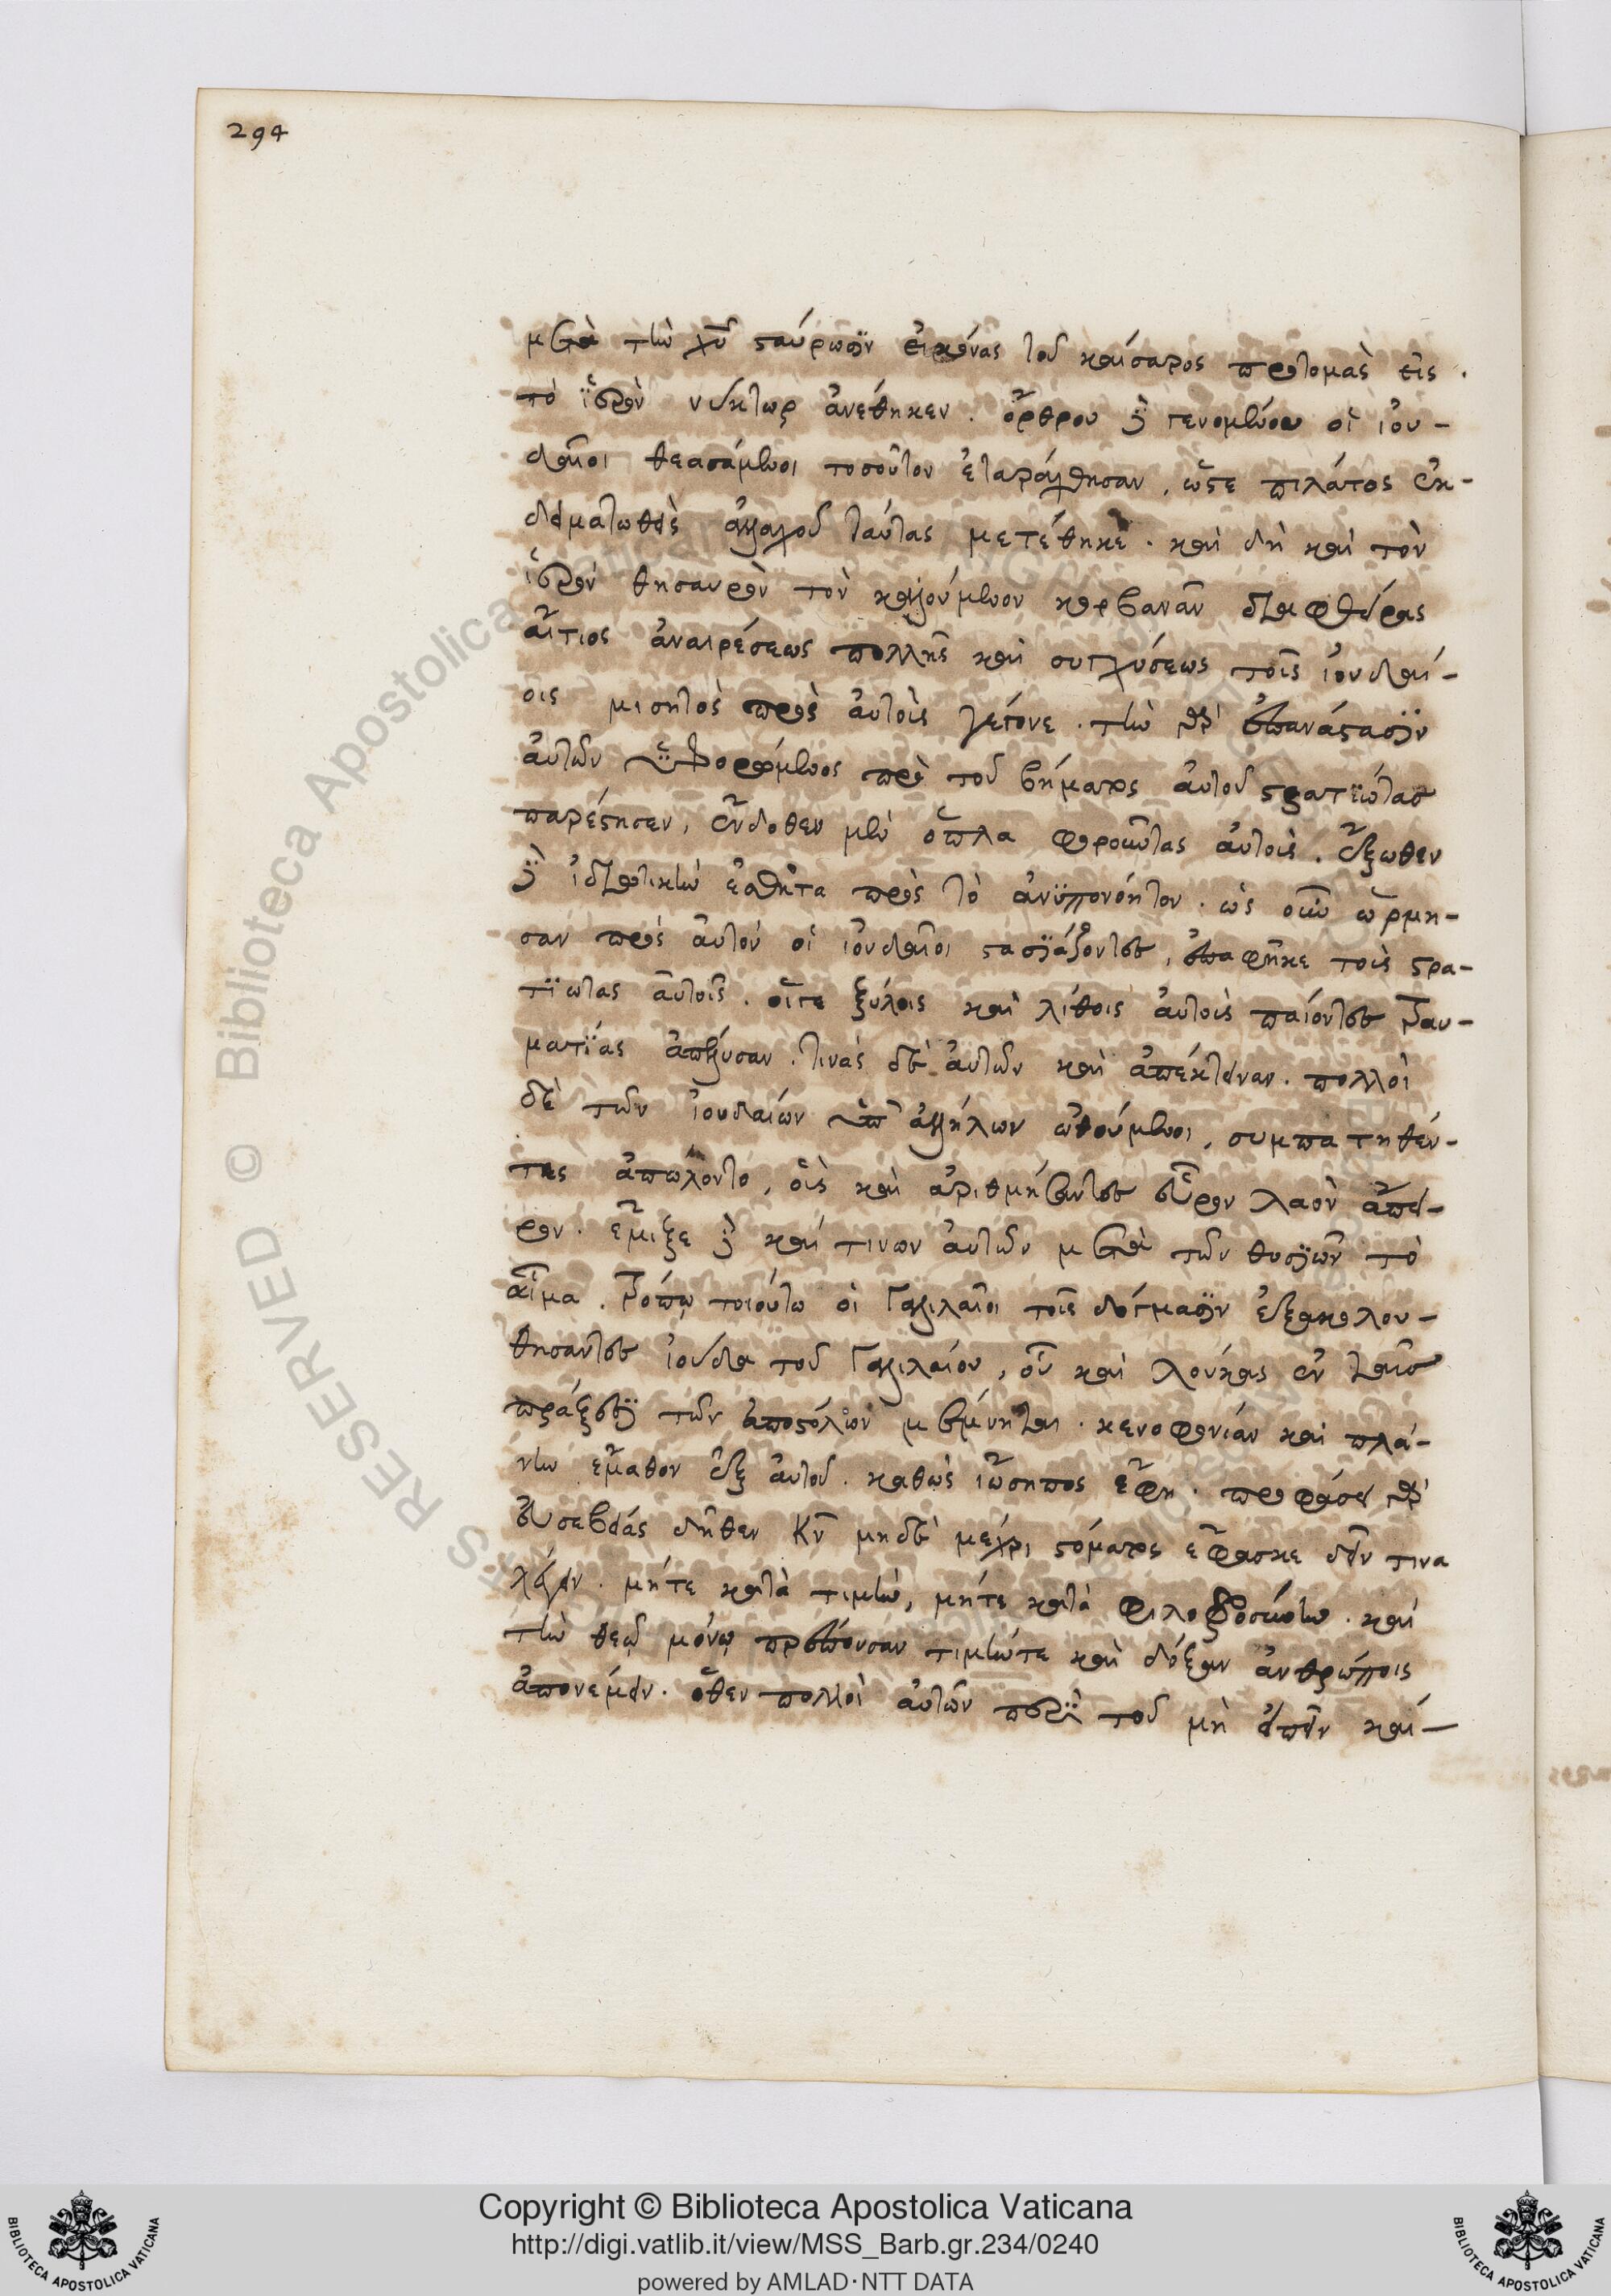 294
μετὰ τὴν χῦ σταύρωσϊν εἰκόνας τοῦ καίσαρος προτομὰς εἰς
τὸ ϊερὸν νύκτωρ ἀνέθηκεν. ὄρθρου δὲ γενομένου οἱ ἰου-
δαῖοι θεασάμενοι τοσοῦτον ἐταράχθησαν, ὥστε πιλάτος ἐκ-
δειματωθεὶς ἀλλαχοῦ ταύτας μετέθηκε. καὶ δὴ καὶ τὸν
ἱερὸν θησαυρὸν τὸν καλούμενον κορβανᾶν διαφθείρας
αἴτιος ἀναιρέσεως πολλῆς καὶ συγχύσεως τοῖς ἰουδαί-
οις μισητὸς πρὸς αὐτοὺς γέγονε. τὴν γὰρ ἐπανάστασϊν
αὐτῶν ὑφορώμενος πρὸ τοῦ βήματος αὐτοῦ στρατϊώτας
παρέστησεν, ἔνδοθεν μὲν ὅπλα φοροῦντας αὐτοὺς. ἔξωθεν
δὲ ἰδιωτικὴν ἐσθῆτα πρὸς τὸ ἀνϋπονόητον. ὡς οὖν ὥρμη-
σαν πρὸς αὐτὸν οἱ ἰουδαῖοι στασϊάζοντες, ἐπαφῆκε τοὺς στρα-
τϊώτας αὐτοῖς. οἵτε ξύλοις καὶ λίθοις αὐτοὺς παίοντες τραυ-
ματϊας ἀπέλυσαν. τινὰς δὲ αὐτῶν καὶ ἀπέκτειναν. πολλοὶ
δὲ τῶν ἰουδαίων ὑπ' ἀλλήλων ὠθούμενοι, συμπατηθέν-
τες ἀπώλοντο, οὓς καὶ ἀριθμήσαντες εὗρον λαὸν ἄπει-
ρον. ἔμιξε δὲ καί τινων αὐτῶν μετὰ τῶν θυσϊῶν τὸ
αἷμα. τρόπῳ τοιούτω οἱ Γαλιλαῖοι τοῖς δόγμασϊν ἐξακολου-
θήσαντες ἰούδα τοῦ Γαλιλαίου, οὗ καὶ λουκᾶς ἐν ταῖς
πράξεσϊ τῶν ἀποστόλων μέμνηται. κενοφωνίαν καὶ πλά-
νην ἔμαθον ἐξ αὐτοῦ. καθὼς ἰώσηπος ἔφη. προφάσει γὰρ
εὐσεβείας δῆθεν κν μηδὲ μέχρι στόματος ἔφασκε δεῖν τινα
λέγειν. μήτε κατὰ τιμὴν, μήτε κατὰ φιλοφροσύνην. καὶ
τὴν θεῷ μόνῳ πρέπουσαν τιμήντε καὶ δόξαν ἀνθρώποις
ἀπονέμειν. ὅθεν πολλοὶ αὐτῶν περὶ τοῦ μὴ εἰπεῖν καί-
Copyright © Biblioteca Apostolica Vaticana
http://digi.vatlib.it/view/MSS_Barb.gr.234/0240
powered by AMLAD·NTT DATA